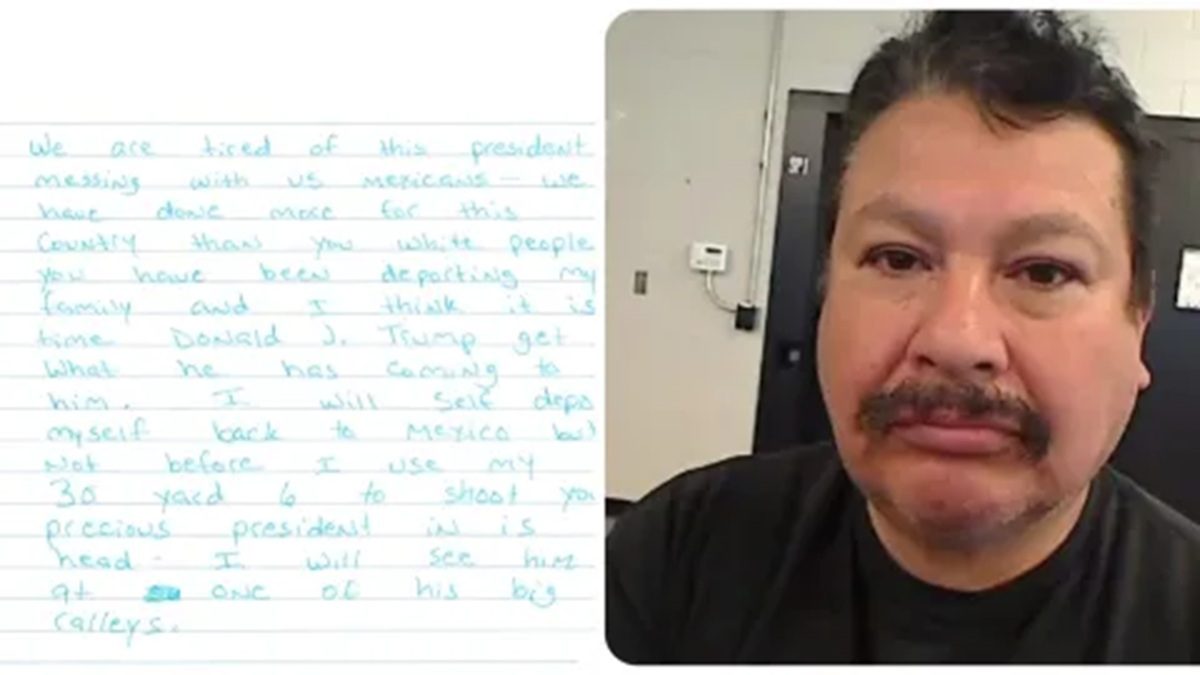 We are tired of this president
messing with us mexicans - we
have done more for this
Country than you white people
you have been deporting my
family and I think it is
time Donald J. Trump get
What he has coming to
him. I will self depo
myself back to mexico but
not before I use my
30 yard 6 to shoot you
precious president in is
head - I will see him
at one of his big
ralleys.